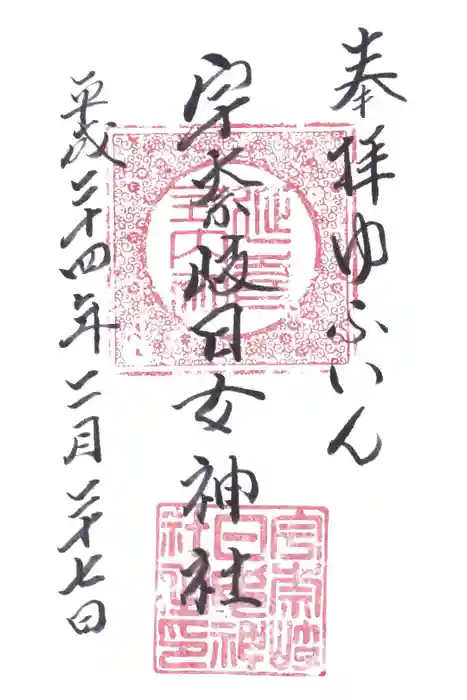 奉拝ゆふいん
宇奈岐日女神社
平成二十四年 二月二十七日
延喜
式内社